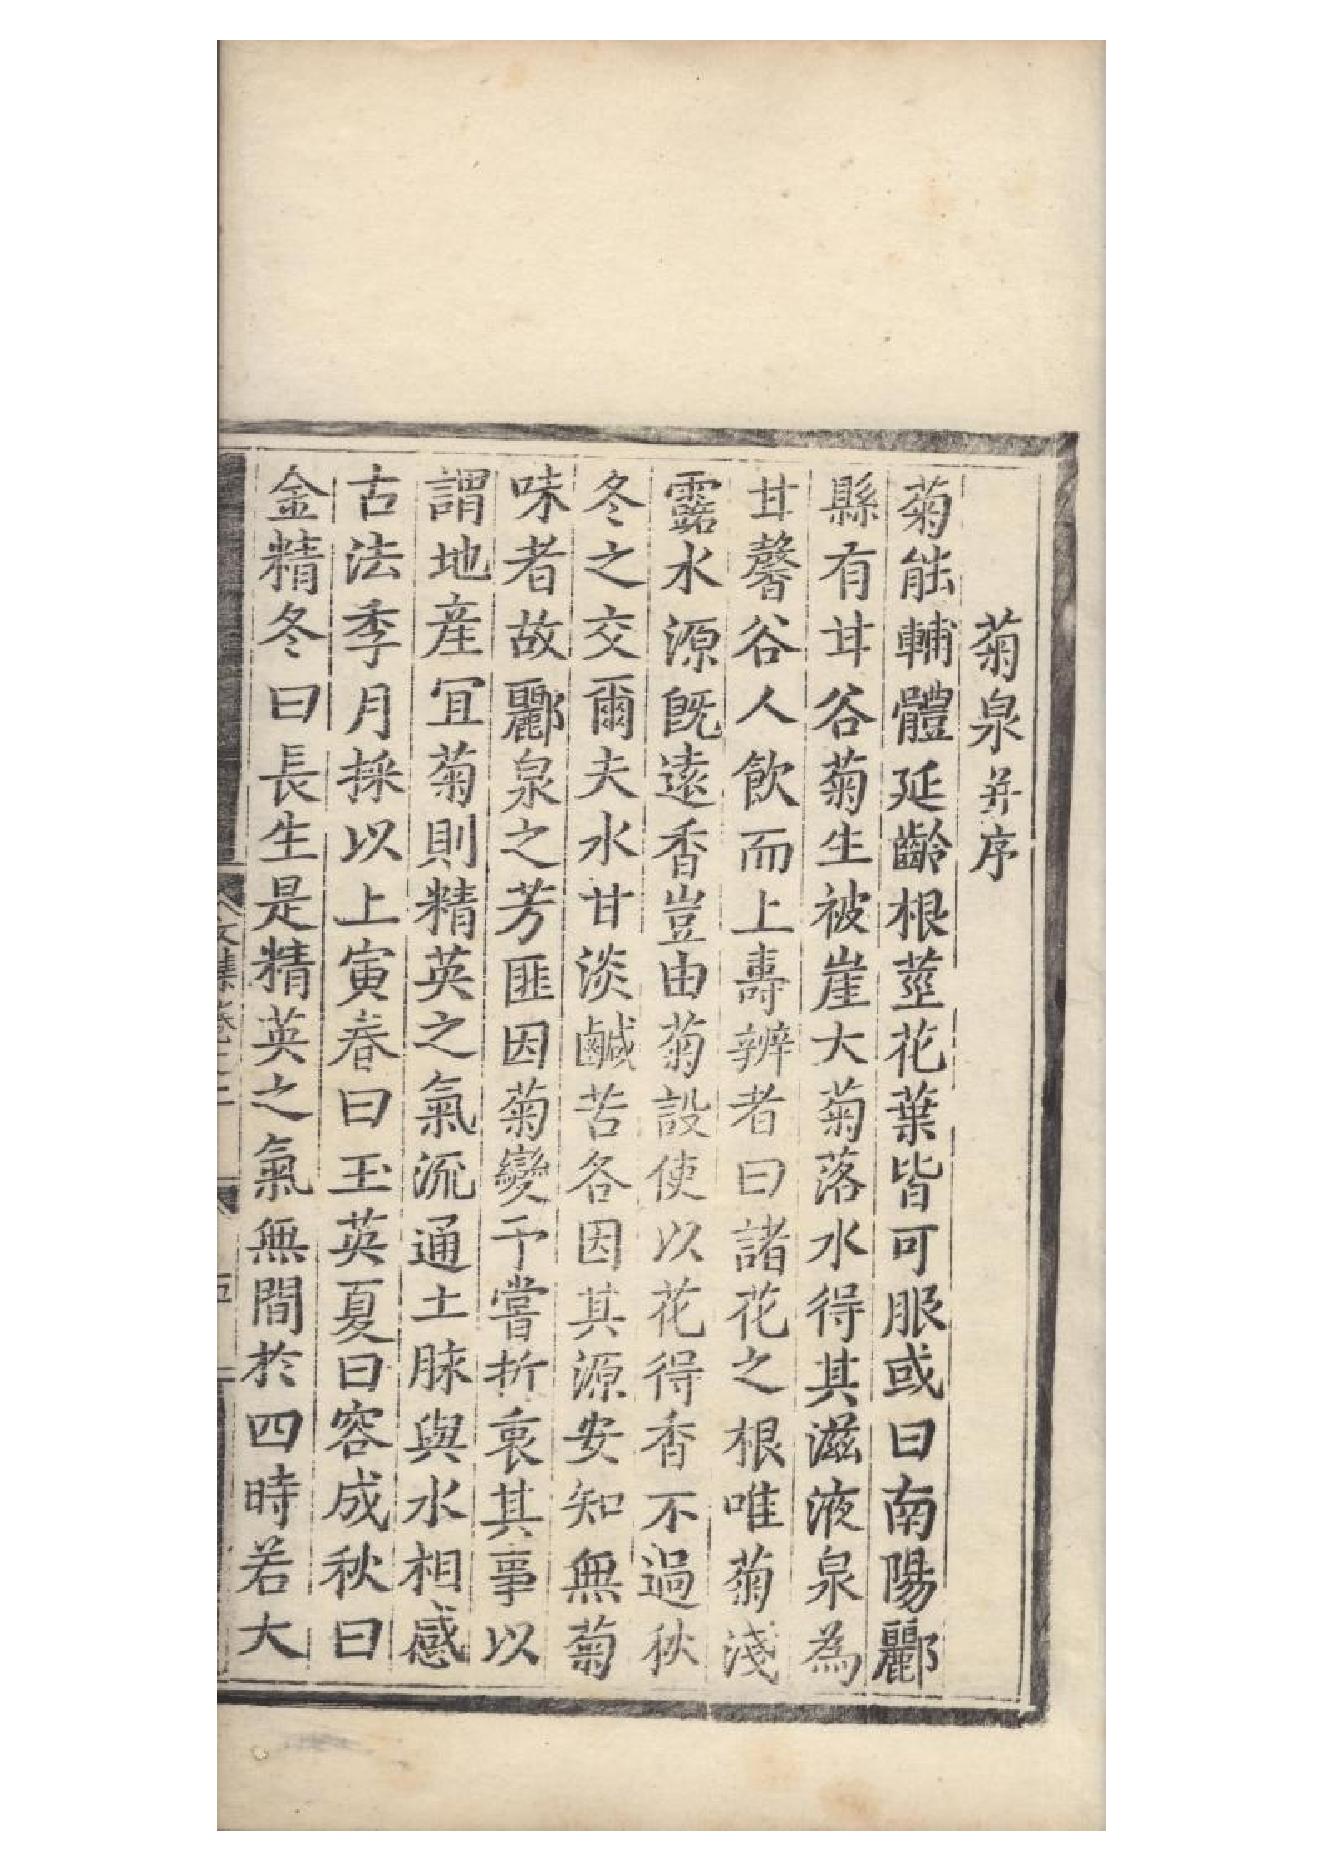 菊泉并序
菊能輔體延齡根莖花葉皆可服或曰南陽酈
縣有甘谷菊生被崖大菊落水得其滋液泉為
甘馨谷人飲而上壽辨者曰諸花之根唯菊淺
露水源既遠香豈由菊設使以花得香不過秋
冬之交爾夫水甘淡鹹苦各因其源安知無菊
味者故酈泉之芳匪因菊變予嘗折衷其事以
謂地產宜菊則精英之氣流通土脉與水相感
古法季月採以上寅春曰玉英夏曰容成秋曰
金精冬曰長生是精英之氣無間於四時若大
文集卷之二
五